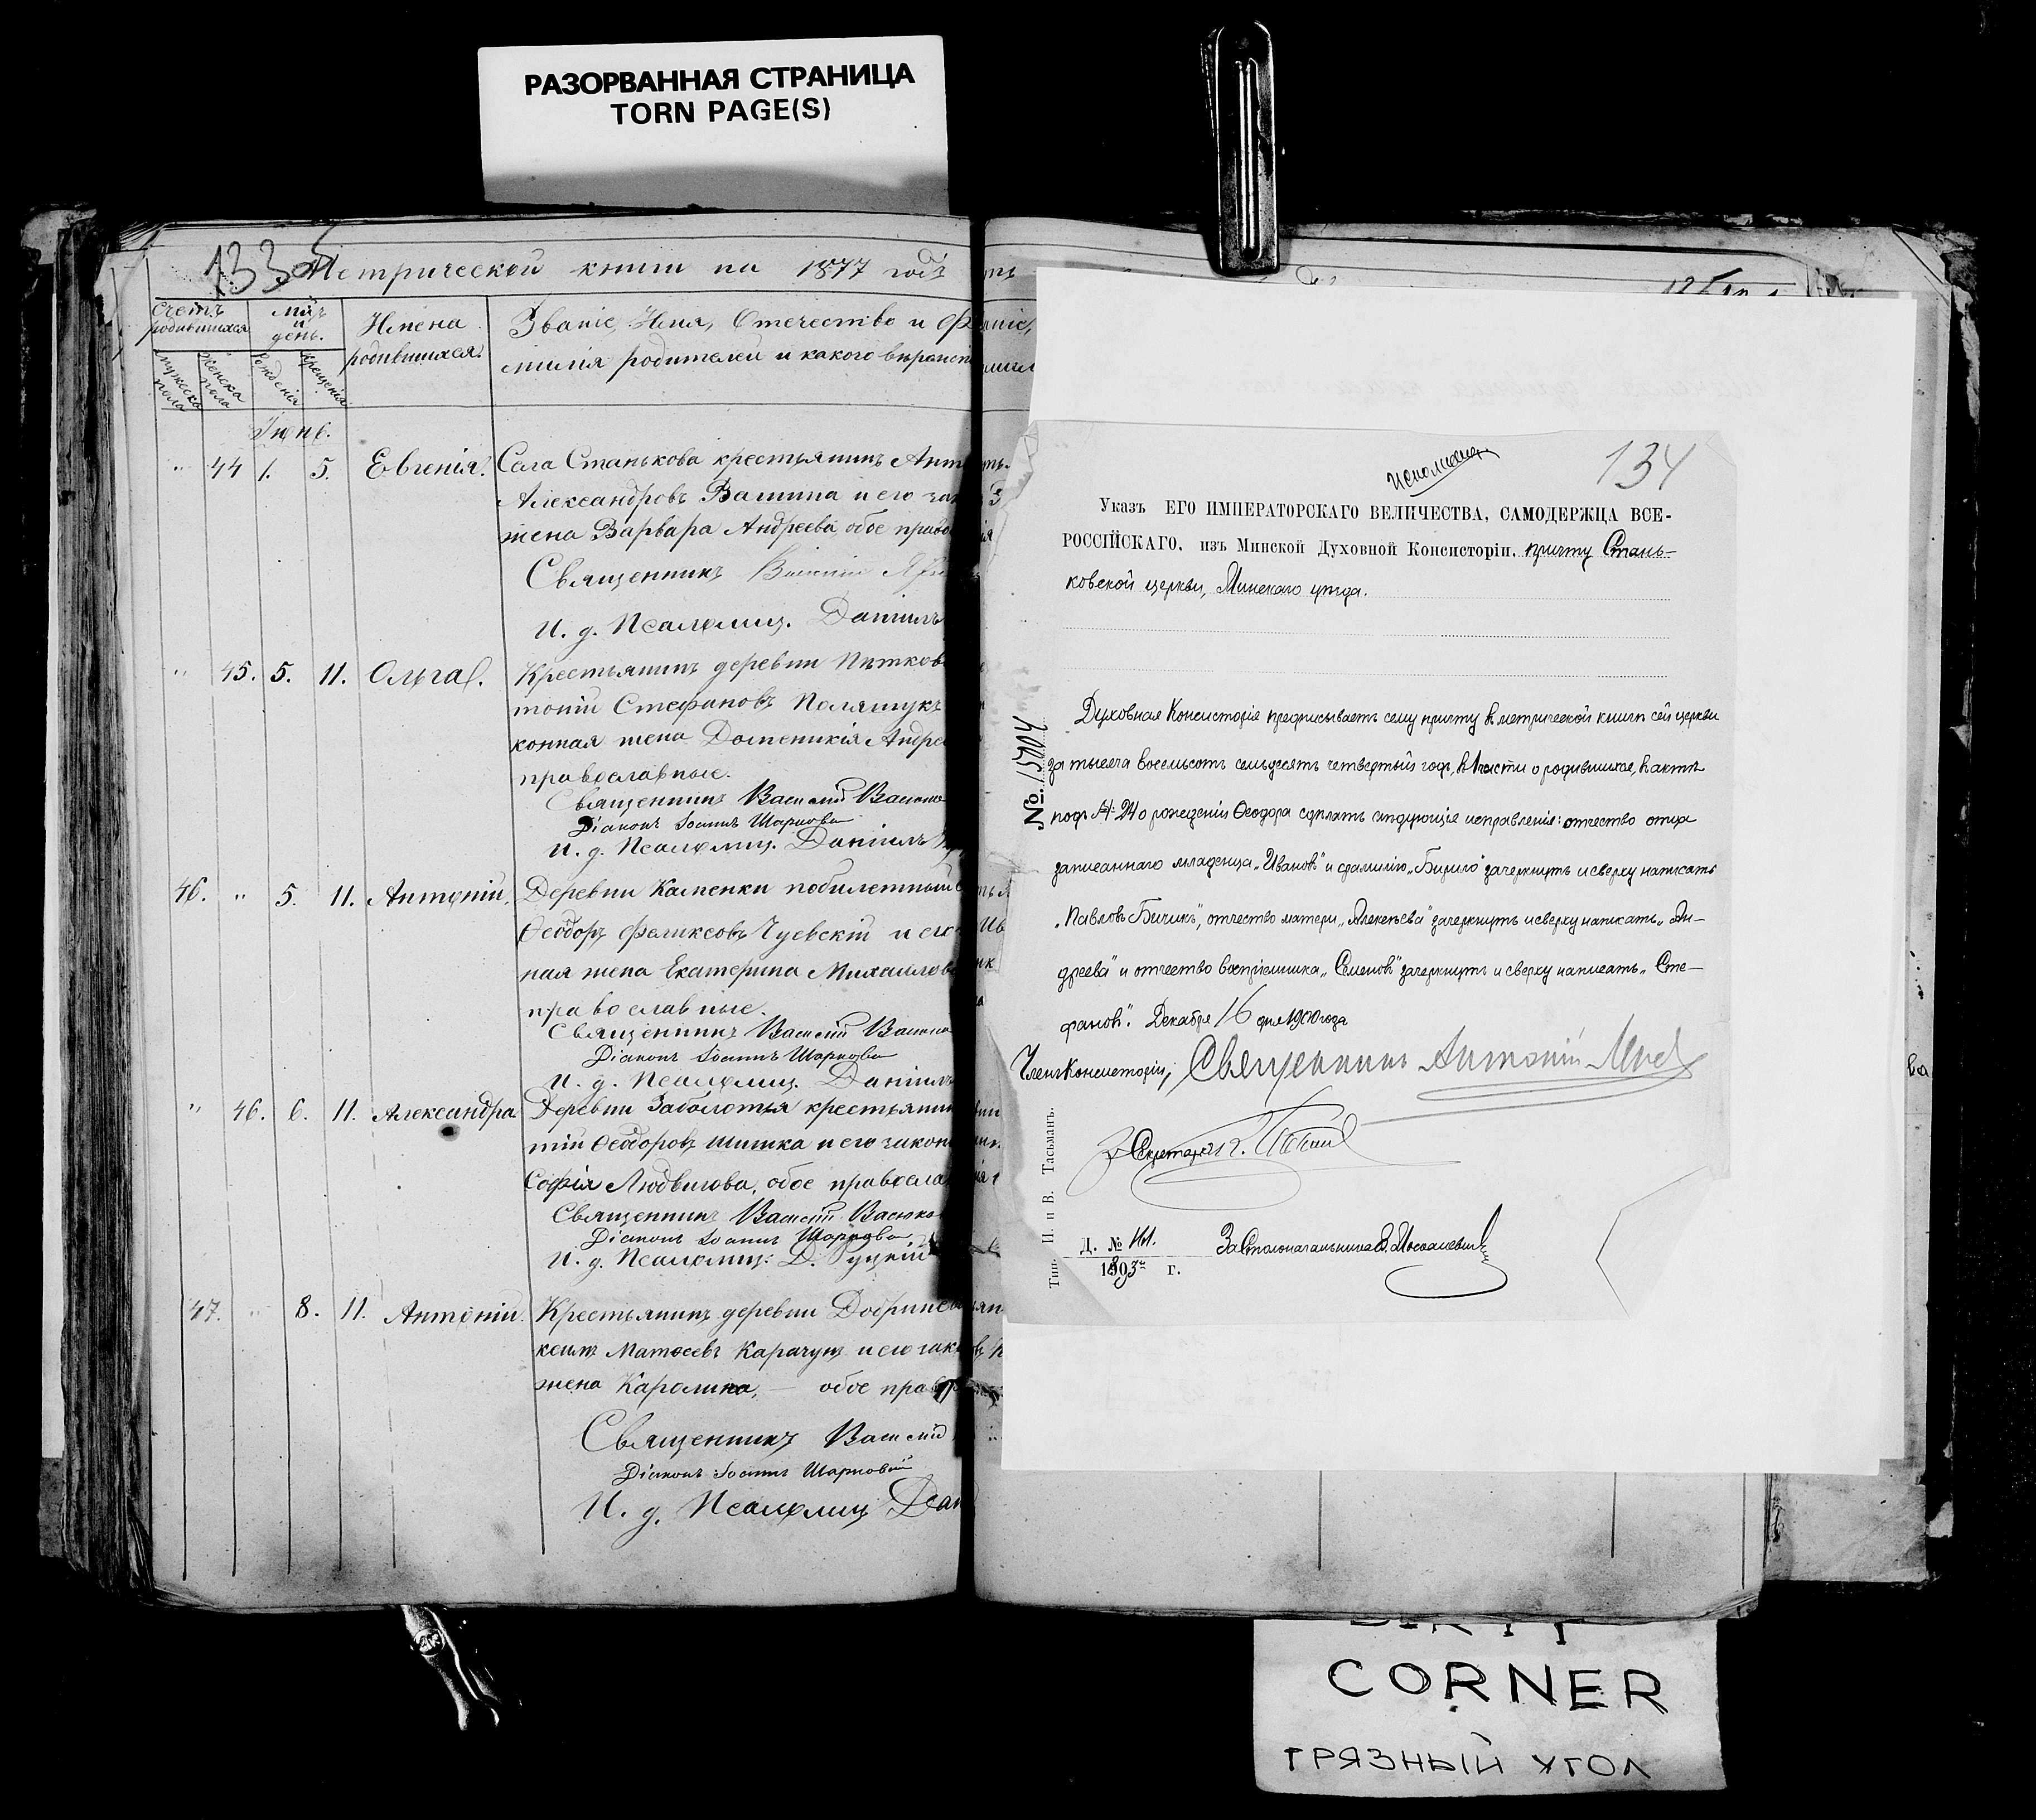 РАЗОРВАННАЯ СТРАНИЦА
TORN PAGE(S)
133
Метрической книги на 1877 годъ
Счетъ родившихся
Мцъ и день.
Имена родившихся.
Званіе, Имя, Отечество и Фа
милія родителей и какого вѣроисп
мужеска пола
женска пола
рожденія
крещенія
Іюнь.
" 44 1. 5. Евгенія. Села Станькова крестьянинъ Ант
Александровъ Вашина и его зак
жена Варвара Андреева обое право
Священникъ
И. д. Псаломщ. Даніилъ
" 45. 5. 11. Ольга. Крестьянинъ деревни Питков
тоній Стефановъ Полящукъ
конная жена Доменикія Андре
православные.
Священникъ Василій
Діаконъ Іоаннъ
И. д. Псаломщ. Даніилъ
46. " 5. 11. Антоній. Деревни Каменки побилетный
Ѳеодоръ Феликсовъ Чуевскій и его
ная жена Екатерина Михайлова
православные.
Священникъ Василій
Діаконъ Іоаннъ
И. д. Псаломщ. Даніилъ
" 46. 6. 11. Александра Деревни Заболотья крестьянин
тій Ѳеодоровъ Шишка и его закон
Софія Людвигова, обое правосла
Священникъ Василій
Діаконъ Іоаннъ
И. д. Псаломщ. Д. Руцкій
47. " 8. 11. Антоній. Крестьянинъ деревни Добринева
ксимъ Матѳеевъ Карачунъ и его зак
жена Каролина, — обое прав
Священникъ Василій
Діаконъ Іоаннъ
И. д. Псаломщ Дан
134
исполненъ
Указъ ЕГО ИМПЕРАТОРСКАГО ВЕЛИЧЕСТВА, САМОДЕРЖЦА ВСЕ-
РОССІЙСКАГО, изъ Минской Духовной Консисторіи, причту Стань-
ковской церкви, Минскаго уѣзда.
№. 15004
Духовная Консисторія предписываетъ сему причту въ метрической книгѣ сей церкви
за тысяча восемьсотъ семьдесятъ четвертый годъ, въ I части о родившихся, въ актѣ
подъ № 24 о рожденіи Ѳеодора сдѣлать слѣдующія исправленія: отчество отца
записаннаго младенца „Ивановъ" и фамилію „Бирило" зачеркнуть и сверху написать
„Павловъ Бичикъ", отчество матери „Алексѣева" зачеркнуть и сверху написать „Ан-
дреева" и отчество воспріемника „Семеновъ" зачеркнуть и сверху написать „Сте-
фановъ". Декабря 16 дня 1900 года
Членъ Консисторіи, Священникъ Антоній
Секретарь
Д. №
1893 г.
За Столоначальника
Тип. И. и В. Тасьманъ.
CORNER
ГРЯЗНЫЙ УГОЛ